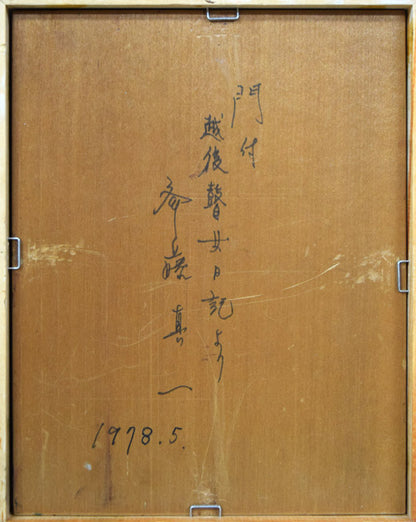 門付
越後瞽女日記より
斎藤真一
1978.5.